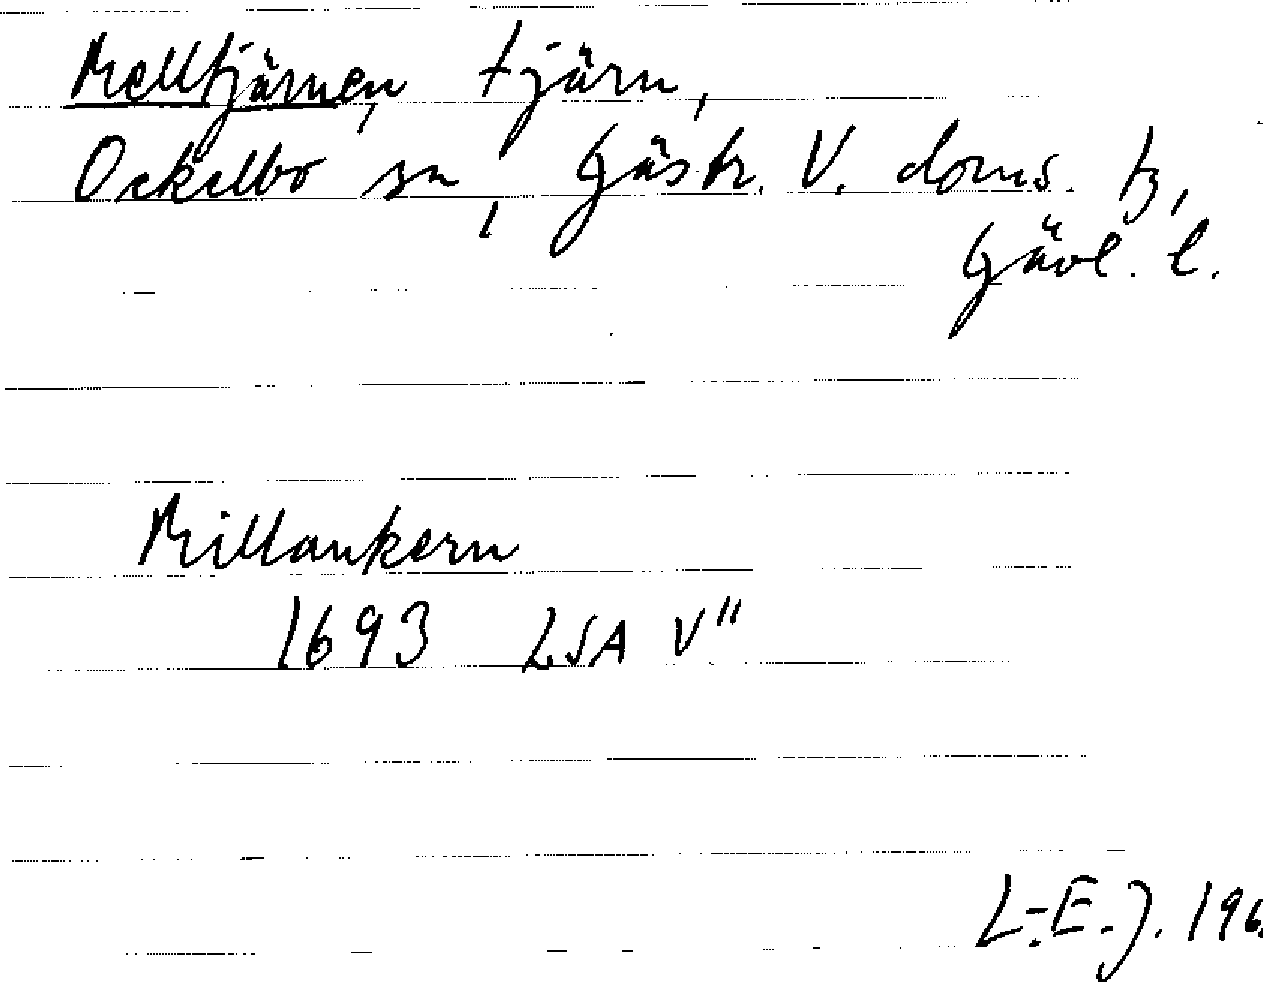 Melltjärnen, tjärn,
Ockelbo sn, Gästr. V. doms. tg,
Gävl. l.
Millankern
1693 LSA V"
L-E.J. 196